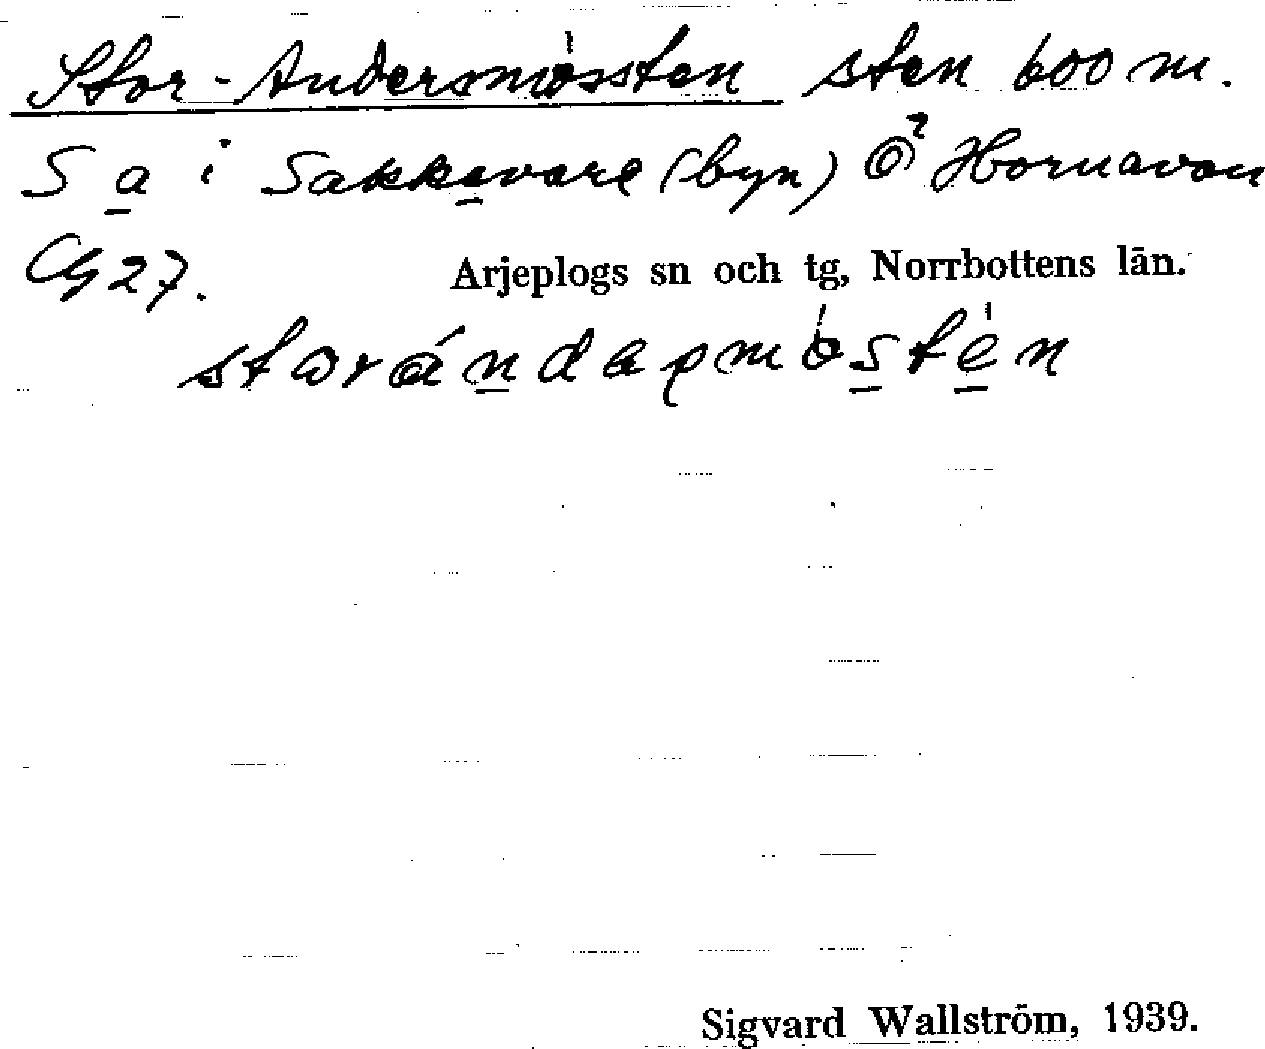 Stor-Andersmössten sten 600 m.
S a i Sakkavare (byn) Ö Hornavan
CG 27. Arjeplogs sn och tg, Norrbottens län.
Sigvard Wallström, 1939.